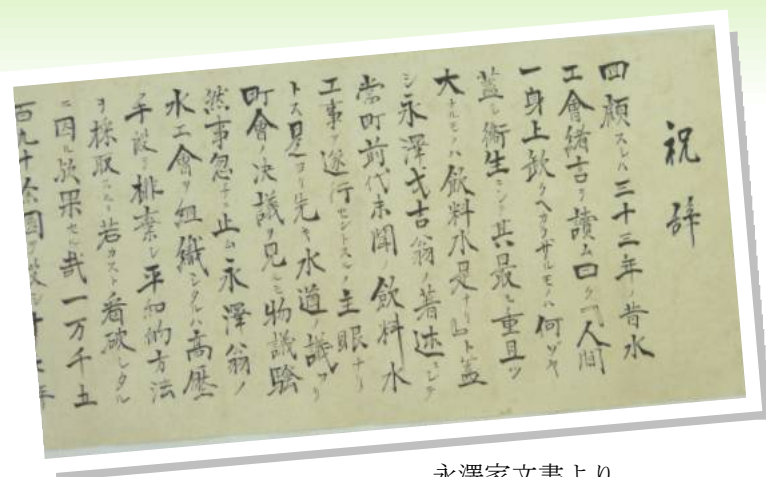 祝辞
回顧スレハ三十三年ノ昔水
工會緒言ヲ讀ム曰ク「人間
一身上欽クヘカラザルモノハ何ゾヤ
蓋シ衛生ニシテ其最モ重且ツ
大ナルモノハ飲料水是ナリ」ト蓋
シ永澤弌吉翁ノ著述ニシテ
當町前代未聞ノ飲料水
工事ヲ遂行セントスルノ主眼ナリ
トス是ヨリ先キ水道ノ議アリ
町會ノ決議ヲ見シモ物議騒
然事忽チニ止ム永澤翁ノ
水工會ヲ組織シタルハ高壓
手段ヲ排棄シ平和的方法
ヲ採取スルニ若カスト看破シタル
ニ因ル欤果セル哉一万千五
百九十余圓ヲ
永澤家文書より